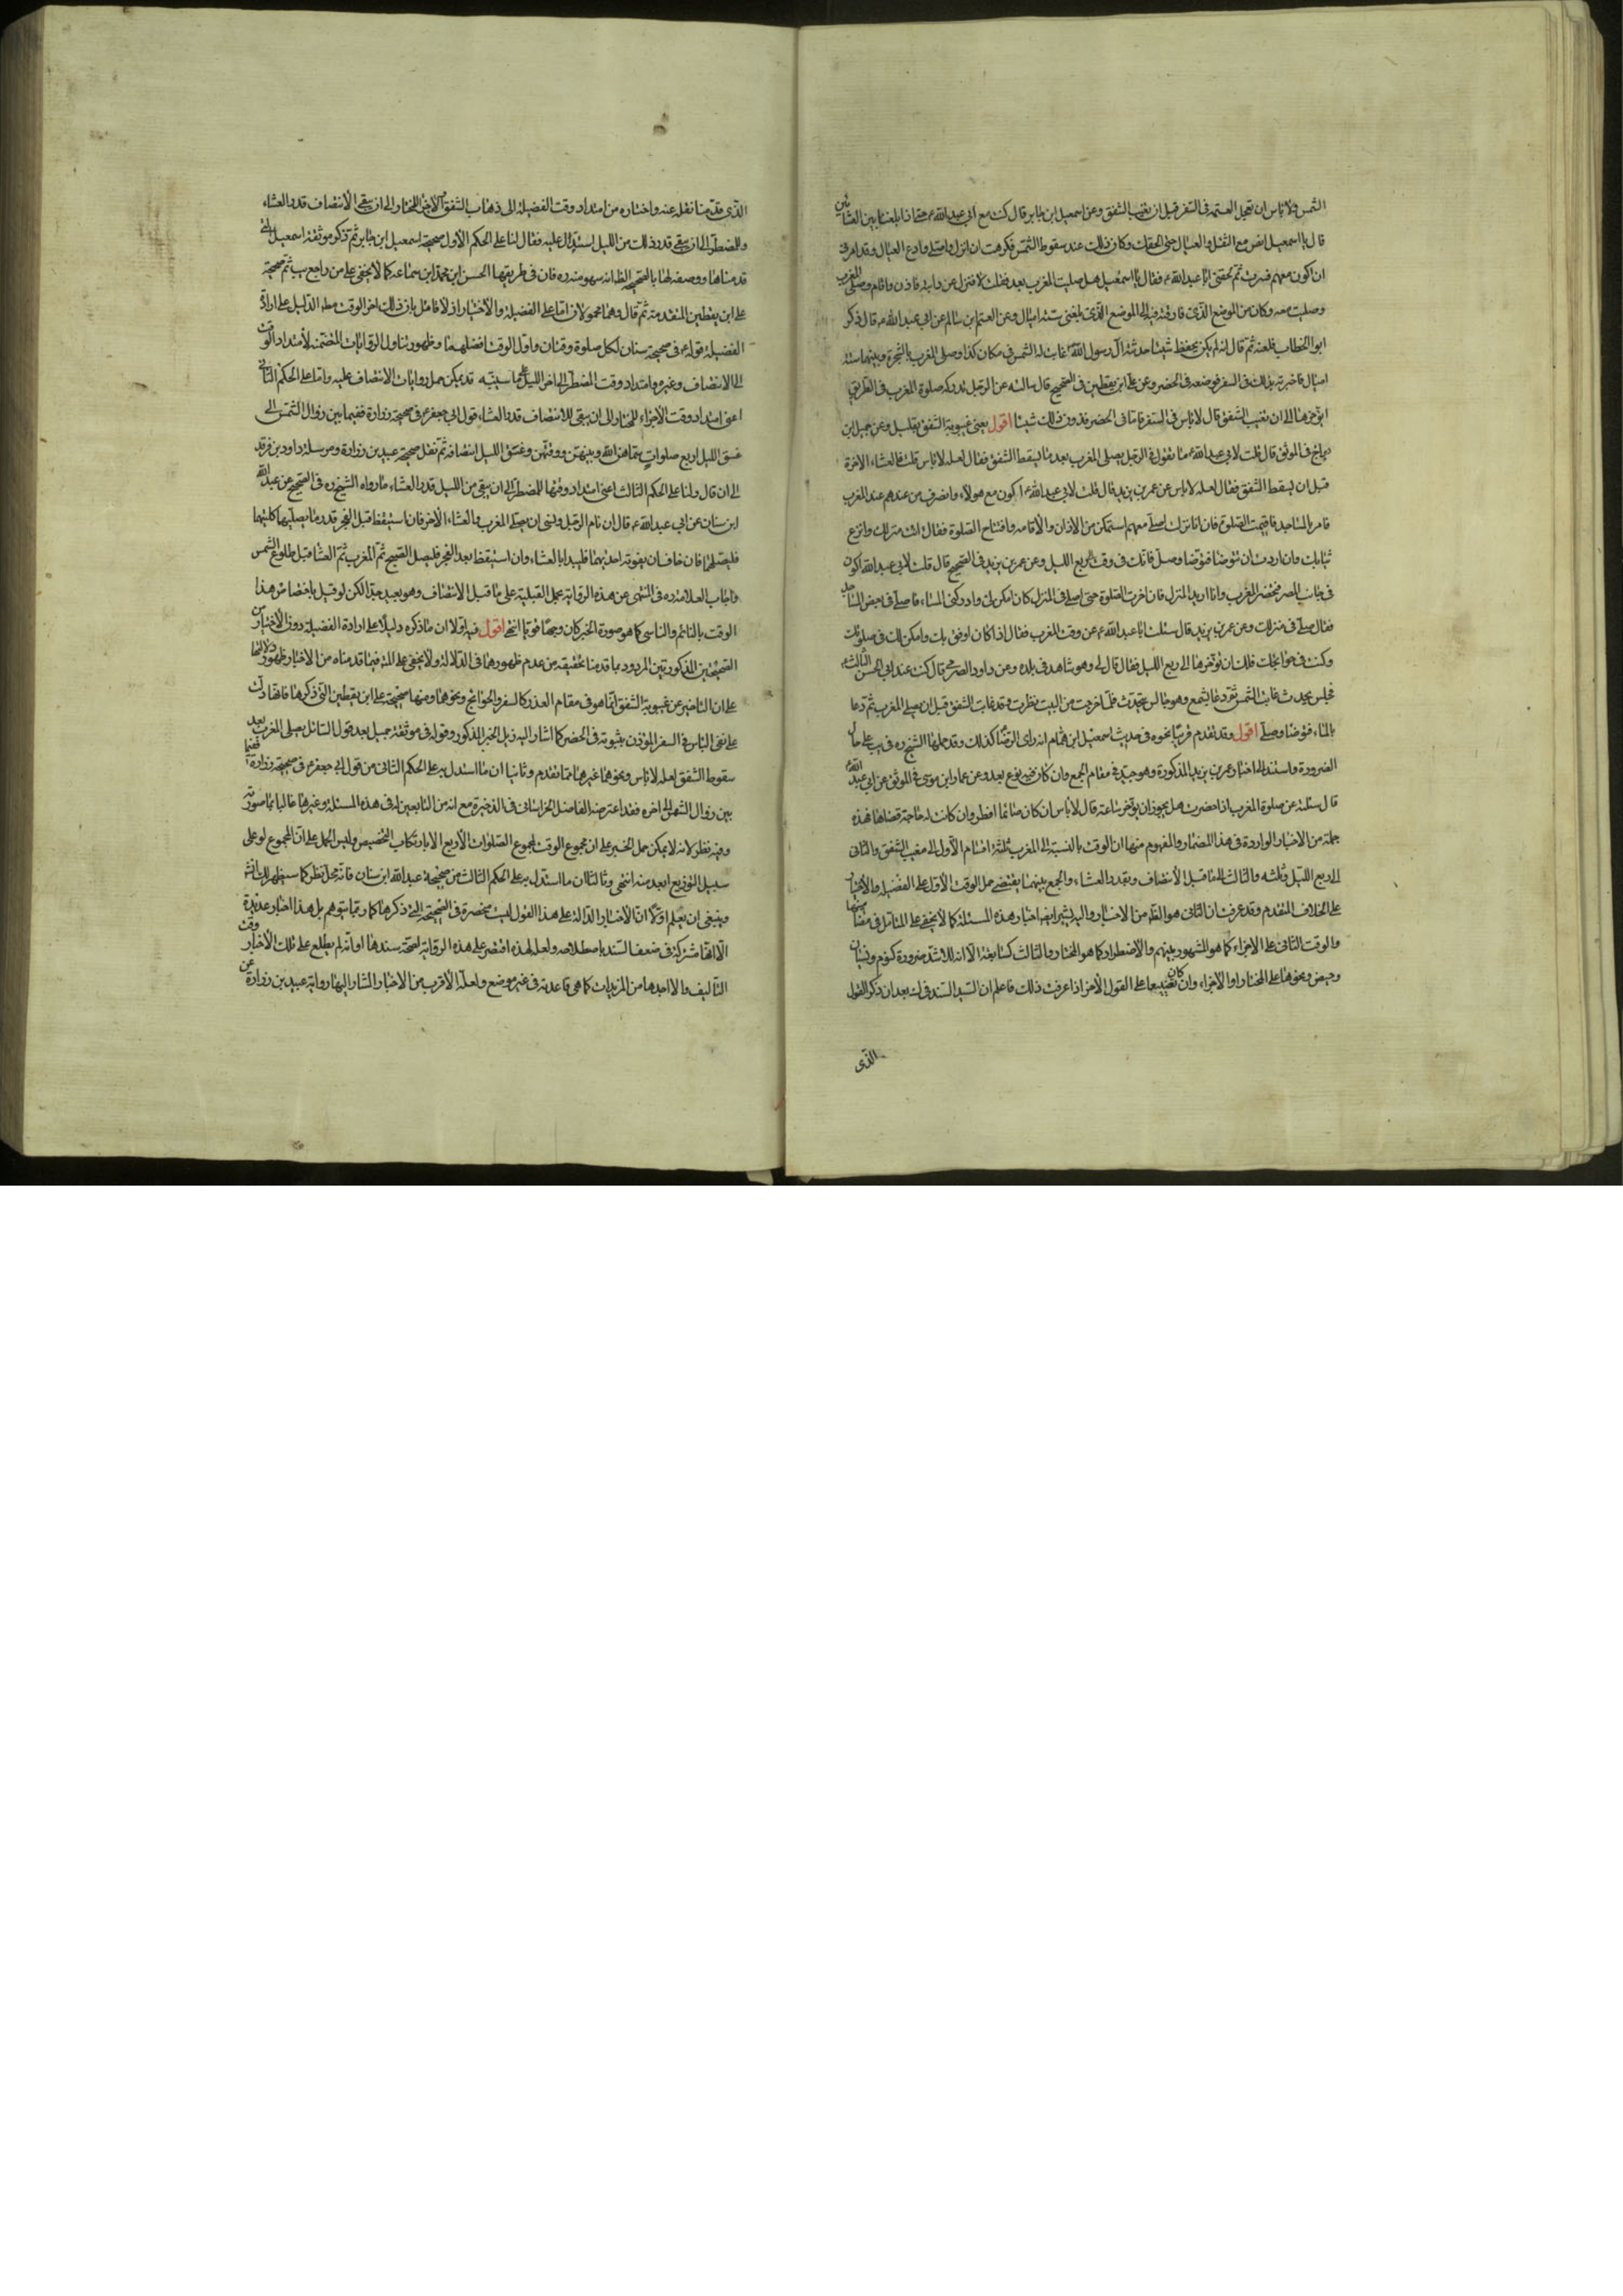 الشمس ولا باس ان تعجل العتمه فى السفر قبل ان يغيب الشفق وعن اسمعيل ابن جابر قال كنت مع ابي عبد الله ع حتى اذا بلغنا بين العشائين
قال يا اسمعيل امض مع الثقل والعيال حتى الحقك وكان ذلك عند سقوط الشمس فكرهت ان انزل واصلي وادع العيال وقد امرنى
ان اكون معهم فسرت ثم لحقنى ابا عبد الله ع فقال يا اسمعيل هل صليت المغرب بعد فقلت لا فنزل عن دابته فاذن واقام وصلى المغرب
وصليت معه وكان من الموضع الذى فارقته فيه الى الموضع الذى لحقنى ستة اميال وعن القسم ابن سالم عن ابي عبد الله ع قال ذكر
ابو الخطاب فلعنه ثم قال انه لم يكن يحفظ شيئا حدثته ان رسول الله غابت له الشمس فى مكان كذا وصلى المغرب بالشجرة وبينهما ستة
اميال فاخبرته بذلك فى السفر فوضعه فى الحضر وعن على ابن يقطين فى الصحيح قال سالته عن الرجل تدركه صلوة المغرب فى الطريق
ايؤخرها الى ان تغيب الشفق قال لا باس فى السفر فاما فى الحضر فدون ذلك شيئا اقول يعنى غيبوبة الشفق بقليل وعن جميل ابن
دراج فى الموثق قال قلت لابي عبد الله ع ما تقول فى الرجل يصلى المغرب بعد ما يسقط الشفق فقال لعله لا باس قلت فالعشاء الاخرة
قبل ان يسقط الشفق فقال لعله لا باس وعن عمر بن يزيد قال قلت لابي عبد الله ع اكون مع هولاء وانصرف من عندهم عند المغرب
فامر بالمساجد فاقيمت الصلوة فان انا نزلت اصلي معهم لم استمكن من الاذان والاقامه وافتتاح الصلوة فقال ائت منزلك وانزع
ثيابك وان اردت ان تتوضا فتوضا وصل فانك فى وقت الى ربع الليل وعن عمر بن يزيد فى الصحيح قال قلت لابي عبد الله اكون
فى جانب المصر فتحضر المغرب وانا اريد المنزل فان اخرت الصلوة حتى اصلي فى المنزل كان امكن لى وادركنى المساء فاصلي فى بعض المساجد
فقال صل فى منزلك وعن عمر بن يزيد قال سئلت ابا عبد الله ع عن وقت المغرب فقال اذا كان اوفق بك وامكن لك فى صلوتك
وكنت فى حوائجك فلك ان تؤخرها الى ربع الليل فقال قال لي وهو شاهد فى بلده وعن داود الصرمى قال كنت عند ابي الحسن الثالث ع
فجلس يحدث حتى غابت الشمس ثم دعا بشمع وهو جالس يتحدث فلما خرجت من البيت نظرت وقد غاب الشفق قبل ان يصلي المغرب ثم دعا
بالماء فتوضا وصلى اقول وقد تقدم قريبا نحوه فى حديث اسمعيل ابن همام انه راى الرضا ع كذلك وقد حملها الشيخ ره فى يب على حال
الضرورة واستند الى اخبار عمر بن يزيد المذكورة وهو جيد فى مقام الجمع وان كان فيه نوع بعد وعن عمار ابن موسى فى الموثق عن ابي عبد الله ع
قال سئلته عن صلوة المغرب اذا حضرت هل يجوز ان يؤخر ساعة قال لا باس ان كان صائما افطر وان كانت له حاجة قضاها فهذه
جملة من الاخبار الواردة فى هذا المضمار والمفهوم منها ان الوقت بالنسبة الى المغرب ثلثة اقسام الاول الى مغيب الشفق والثانى
الى ربع الليل وثلثه والثالث الى ما قبل الانتصاف وبقدر العشاء والجمع بينهما يقتضي حمل الوقت الاول على الفضيله والاختيار
على الخلاف المتقدم وقد عرفت ان الثانى هو الظاهر من الاخبار واليه يشير ايضا اخبار هذه المسئلة كما لا يخفى على المتامل فى مضامينها
والوقت الثانى على الاجزاء كما هو المشهور بينهم والاضطرار كما هو المختار والثالث كسابقة الا انه للاشد ضرورة كنوم ونسيان
وحيض ونحوها على المختار او الاجزاء وان كان تضييعا على القول الاخر اذا عرفت ذلك فاعلم ان السيد السند فى ك بعد ان ذكر القول
الذى
الذى قدمنا نقله عنه واختاره من امتداد وقت الفضيلة الى ذهاب الشفق والاجزاء للمختار الى ان يبقى للانتصاف قدر العشاء
وللمضطر الى ان يبقى قدر ذلك من الليل استدل عليه فقال لنا على الحكم الاول صحيحة اسمعيل ابن جابر ثم ذكر موثقة اسمعيل التى
قدمناها ووصفه لها بالصحيح الظ انه سهو منه ره فان فى طريقها الحسن ابن محمد ابن سماعه كما لا يخفى على من راجع يب ثم صحيحة
على ابن يقطين المتقدمة ثم قال وهما محمولان اما على الفضيلة والاختيار اذ لا قائل بان ذلك اخر الوقت مط الدليل على ارادة
الفضيلة قوله ع فى صحيحة ابن سنان لكل صلوة وقتان واول الوقت افضلهما وظهور تناول الروايات المتضمنة لامتداد الوقت
الى الانتصاف وغيره وامتداد وقت المضطر الى اخر الليل على ما سنبينه قد يمكن حمل روايات الانتصاف عليه واما على الحكم الثانى
اعنى امتداد وقت الاجزاء للمختار الى ان يبقى للانتصاف قدر العشاء قول ابي جعفر ع فى صحيحة زرارة ففيما بين زوال الشمس الى
غسق الليل اربع صلوات سماهن الله وبينهن ووقتهن وغسق الليل انتصافه ثم نقل صحيحة عبيد بن زرارة ومرسلة داود بن فرقد
الى ان قال ولنا على الحكم الثالث اعنى امتداد وقتها للمضطر الى ان يبقى من الليل قدر العشاء ما رواه الشيخ ره فى الصحيح عن عبد الله
ابن سنان عن ابي عبد الله ع قال ان نام الرجل ولنسى ان يصلي المغرب والعشاء الاخر فان استيقظ قبل الفجر قدر ما يصليهما كلتيهما
فليصلهما فان خاف ان يفوته احديهما فليبدا بالعشاء وان استيقظ بعد الفجر فليصل الصبح ثم المغرب ثم العشاء قبل طلوع الشمس
واجاب العلامه ره فى المنتهى عن هذه الرواية بحمل القبلية على ما قبل الانتصاف وهو بعيد جدا لكن لو قيل باختصاص هذا
الوقت بالنائم والناسى كما هو صورة الخبر كان وجها قويا انتهى اقول فيه اولا ان ما ذكره دليلا على ارادة الفضيلة دون الاختيار من
الصحيحتين المذكورتين المردود بما قدمنا تحقيقه من عدم ظهورها فى الدلالة ولا يخفى على المتامل فيما قدمناه من الاخبار ظهور دلالتها
على ان التاخير عن غيبوبة الشفق انما هو فى مقام العذر كالسفر والحوائج ونحوهما ومنها صحيحة على ابن يقطين التى ذكرها فانها دلت
على نفى الباس فى السفر المؤذن بثبوته فى الحضر كما اشار اليه ذيل الخبر المذكور وقوله فى موثقة جميل بعد قول السائل يصلى المغرب بعد
سقوط الشفق لعله لا باس ونحوهما غيرهما مما تقدم وثانيا ان ما استدل به على الحكم الثانى من قول ابي جعفر ع فى صحيحة زرارة ففيما
بين زوال الشمس الى اخره فقد اعترضه الفاضل الخراسانى فى الذخيرة مع انه من التابعين له فى هذه المسئلة وغيرها غالبا بما صورته
وفيه نظر لانه لا يمكن حمل الخبر على ان مجموع الوقت لمجموع الصلوات الاربع الا بارتكاب التخصيص وليس الحمل على ان المجموع لو على
سبيل التوزيع ابعد منه انتهى وثالثا ان ما استدل به على الحكم الثالث من صحيحة عبد الله ابن سنان فانه محل نظر كما سيظهر لك انشا
وينبغى ان يعلم اولا ان الاخبار الدالة على هذا القول ليست منحصرة فى الصحيحة التى ذكرها كما ربما يتوهم بل هنا اخبار عديدة
الا انها مشتركة فى ضعف السند باصطلاحه ولعله لهذه اقتصر على هذه الرواية لصحة سندها او انه لم يطلع على تلك الاخبار وقت
التاليف والا لعدها من المؤيدات كما هى قاعدته فى غير موضع ولعله الاقرب من الاخبار المشار اليها رواية عبيد بن زرارة عن